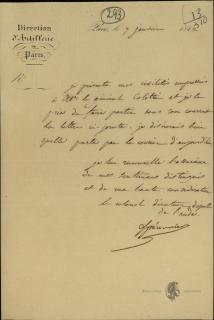 Direction
d'Artillerie
de
Paris.
Paris le 7 janvier
293
je présente mes civilités empressées
à Mr le général Colletta et je le
prie de faire partir sous son couvert
la lettre ci jointe, je désirerais bien
qu'elle parte par le courrier d'aujourd'hui
je lui renouvelle l'assurance
de mes sentiments distingués
et de ma haute considération
le colonel directeur